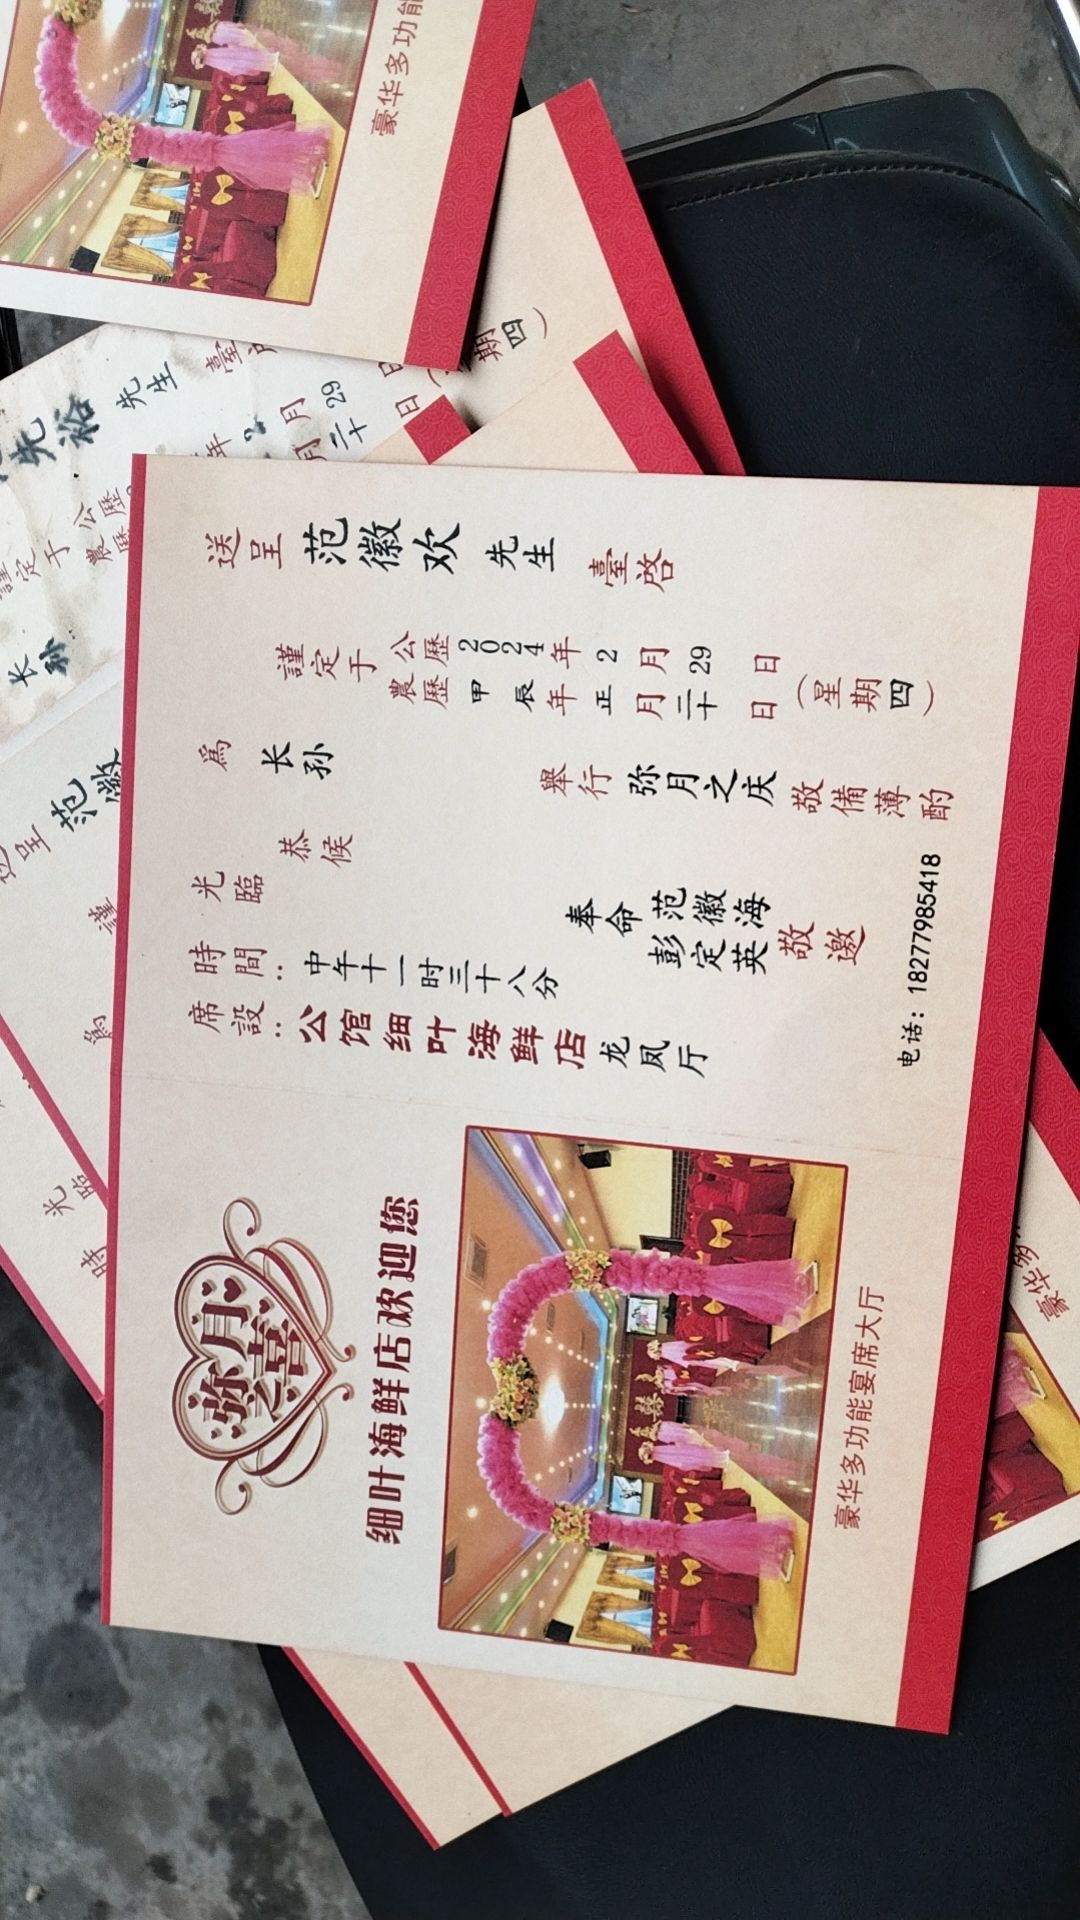 送呈 范徽欢 先生 臺啓
謹定于 公歷2024年2月29日
農歷甲辰年正月二十日（星期四）
為 长孙 舉行 弥月之庆 敬備薄酌
恭候
光臨
奉命 范徽海
彭定英 敬邀
時間：中午十一时三十八分
席設：公馆细叶海鲜店 龙凤厅
电话：18277985418
弥月
之喜
细叶海鲜店欢迎您
豪华多功能宴席大厅
豪华多功能
先裕 先生
謹定于 公歷
農歷
年 2 月 29 日
月二十 日（星期四）
长孙
送呈 范徽
光臨
時
豪华多